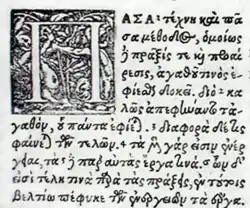 ΠΑΣΑ τέχνη καὶ πᾶ
σα μέθοδος, ὁμοίως
δὲ πρᾶξίς τε καὶ προαί
ρεσις, ἀγαθοῦ τινὸς
ἐφίεσθαι δοκεῖ. διὸ κα
λῶς ἀπεφήναντο τἀ
γαθὸν, οὗ πάντα ἐφίε). διαφορὰ δέ τις
φαίνε) τῶν τελῶν. τὰ μ̀ γάρ εἰσιν ἐνέρ
γειαι, τὰ δὲ παρ' αὐτὰς ἔργα τινά. ὧν δ'
εἰσὶ τέλη τινὰ παρὰ τὰς πράξεις, ἐν τούτοις
βελτίω πέφυκε τῶν ἐνεργειῶν τὰ ἔργα.